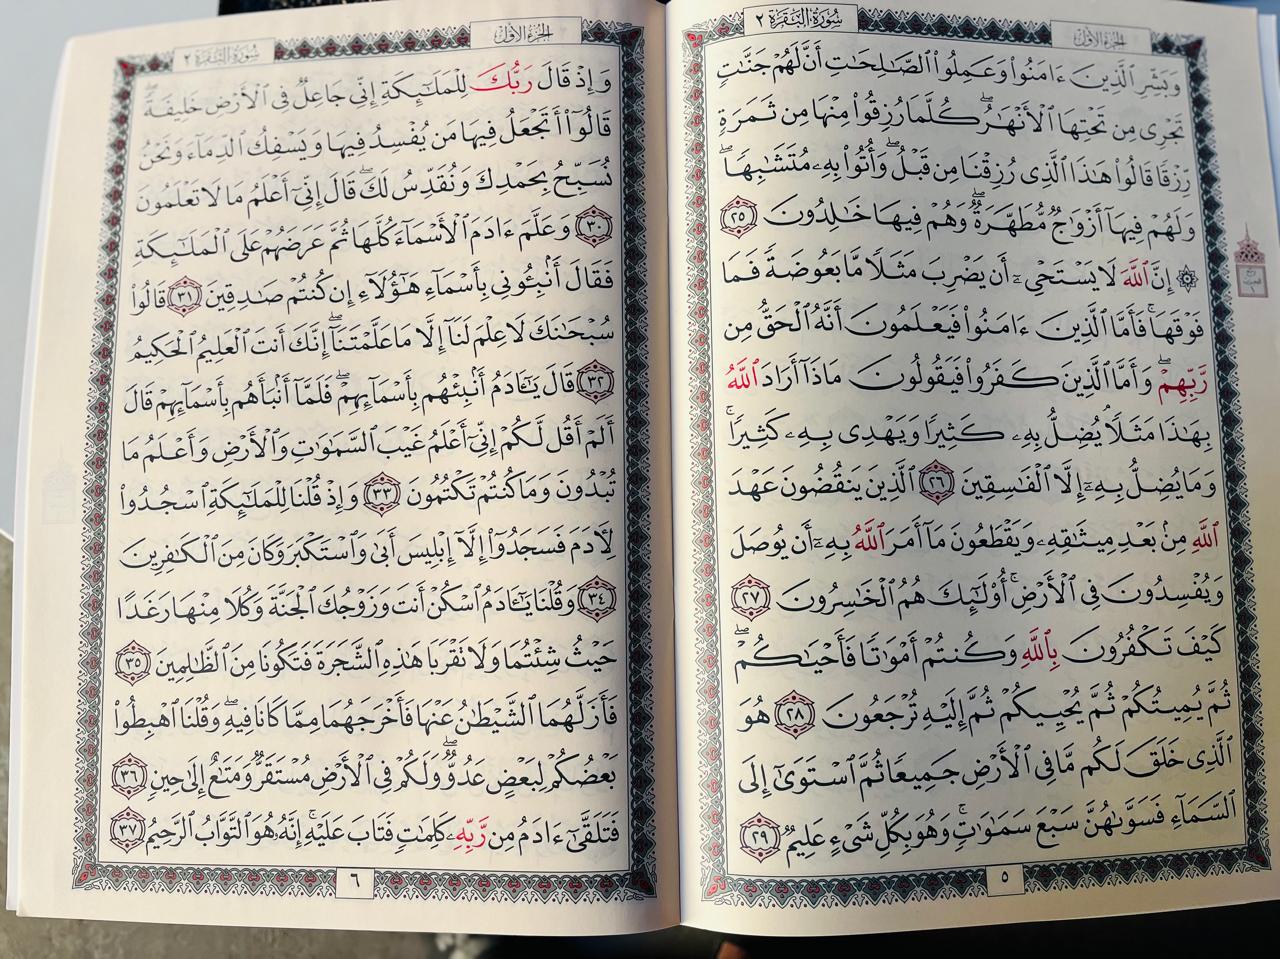 سُورَةُ البَقَرَةِ ٢
الجُزءُ الأَوَّلُ
وَبَشِّرِ ٱلَّذِينَ ءَامَنُوا۟ وَعَمِلُوا۟ ٱلصَّـٰلِحَـٰتِ أَنَّ لَهُمْ جَنَّـٰتٍ
تَجْرِى مِن تَحْتِهَا ٱلْأَنْهَـٰرُ ۖ كُلَّمَا رُزِقُوا۟ مِنْهَا مِن ثَمَرَةٍ
رِّزْقًا قَالُوا۟ هَـٰذَا ٱلَّذِى رُزِقْنَا مِن قَبْلُ ۖ وَأُتُوا۟ بِهِۦ مُتَشَـٰبِهًا ۖ
وَلَهُمْ فِيهَآ أَزْوَٰجٌ مُّطَهَّرَةٌ ۖ وَهُمْ فِيهَا خَـٰلِدُونَ ٢٥
۞ إِنَّ ٱللَّهَ لَا يَسْتَحْىِۦٓ أَن يَضْرِبَ مَثَلًا مَّا بَعُوضَةً فَمَا
فَوْقَهَا ۚ فَأَمَّا ٱلَّذِينَ ءَامَنُوا۟ فَيَعْلَمُونَ أَنَّهُ ٱلْحَقُّ مِن
رَّبِّهِمْ ۖ وَأَمَّا ٱلَّذِينَ كَفَرُوا۟ فَيَقُولُونَ مَاذَآ أَرَادَ ٱللَّهُ
بِهَـٰذَا مَثَلًا ۘ يُضِلُّ بِهِۦ كَثِيرًا وَيَهْدِى بِهِۦ كَثِيرًا ۚ
وَمَا يُضِلُّ بِهِۦٓ إِلَّا ٱلْفَـٰسِقِينَ ٢٦ ٱلَّذِينَ يَنقُضُونَ عَهْدَ
ٱللَّهِ مِنۢ بَعْدِ مِيثَـٰقِهِۦ وَيَقْطَعُونَ مَآ أَمَرَ ٱللَّهُ بِهِۦٓ أَن يُوصَلَ
وَيُفْسِدُونَ فِى ٱلْأَرْضِ ۚ أُو۟لَـٰٓئِكَ هُمُ ٱلْخَـٰسِرُونَ ٢٧
كَيْفَ تَكْفُرُونَ بِٱللَّهِ وَكُنتُمْ أَمْوَٰتًا فَأَحْيَـٰكُمْ ۖ
ثُمَّ يُمِيتُكُمْ ثُمَّ يُحْيِيكُمْ ثُمَّ إِلَيْهِ تُرْجَعُونَ ٢٨ هُوَ
ٱلَّذِى خَلَقَ لَكُم مَّا فِى ٱلْأَرْضِ جَمِيعًا ثُمَّ ٱسْتَوَىٰٓ إِلَى
ٱلسَّمَآءِ فَسَوَّىٰهُنَّ سَبْعَ سَمَـٰوَٰتٍ ۚ وَهُوَ بِكُلِّ شَىْءٍ عَلِيمٌ ٢٩
٥
الجُزءُ الأَوَّلُ
سُورَةُ البَقَرَةِ ٢
وَإِذْ قَالَ رَبُّكَ لِلْمَلَـٰٓئِكَةِ إِنِّى جَاعِلٌ فِى ٱلْأَرْضِ خَلِيفَةً ۖ
قَالُوٓا۟ أَتَجْعَلُ فِيهَا مَن يُفْسِدُ فِيهَا وَيَسْفِكُ ٱلدِّمَآءَ وَنَحْنُ
نُسَبِّحُ بِحَمْدِكَ وَنُقَدِّسُ لَكَ ۖ قَالَ إِنِّىٓ أَعْلَمُ مَا لَا تَعْلَمُونَ
٣٠ وَعَلَّمَ ءَادَمَ ٱلْأَسْمَآءَ كُلَّهَا ثُمَّ عَرَضَهُمْ عَلَى ٱلْمَلَـٰٓئِكَةِ
فَقَالَ أَنۢبِـُٔونِى بِأَسْمَآءِ هَـٰٓؤُلَآءِ إِن كُنتُمْ صَـٰدِقِينَ ٣١ قَالُوا۟
سُبْحَـٰنَكَ لَا عِلْمَ لَنَآ إِلَّا مَا عَلَّمْتَنَآ ۖ إِنَّكَ أَنتَ ٱلْعَلِيمُ ٱلْحَكِيمُ
٣٢ قَالَ يَـٰٓـَٔادَمُ أَنۢبِئْهُم بِأَسْمَآئِهِمْ ۖ فَلَمَّآ أَنۢبَأَهُم بِأَسْمَآئِهِمْ قَالَ
أَلَمْ أَقُل لَّكُمْ إِنِّىٓ أَعْلَمُ غَيْبَ ٱلسَّمَـٰوَٰتِ وَٱلْأَرْضِ وَأَعْلَمُ مَا
تُبْدُونَ وَمَا كُنتُمْ تَكْتُمُونَ ٣٣ وَإِذْ قُلْنَا لِلْمَلَـٰٓئِكَةِ ٱسْجُدُوا۟
لِـَٔادَمَ فَسَجَدُوٓا۟ إِلَّآ إِبْلِيسَ أَبَىٰ وَٱسْتَكْبَرَ وَكَانَ مِنَ ٱلْكَـٰفِرِينَ
٣٤ وَقُلْنَا يَـٰٓـَٔادَمُ ٱسْكُنْ أَنتَ وَزَوْجُكَ ٱلْجَنَّةَ وَكُلَا مِنْهَا رَغَدًا
حَيْثُ شِئْتُمَا وَلَا تَقْرَبَا هَـٰذِهِ ٱلشَّجَرَةَ فَتَكُونَا مِنَ ٱلظَّـٰلِمِينَ ٣٥
فَأَزَلَّهُمَا ٱلشَّيْطَـٰنُ عَنْهَا فَأَخْرَجَهُمَا مِمَّا كَانَا فِيهِ ۖ وَقُلْنَا ٱهْبِطُوا۟
بَعْضُكُمْ لِبَعْضٍ عَدُوٌّ ۖ وَلَكُمْ فِى ٱلْأَرْضِ مُسْتَقَرٌّ وَمَتَـٰعٌ إِلَىٰ حِينٍ ٣٦
فَتَلَقَّىٰٓ ءَادَمُ مِن رَّبِّهِۦ كَلِمَـٰتٍ فَتَابَ عَلَيْهِ ۚ إِنَّهُۥ هُوَ ٱلتَّوَّابُ ٱلرَّحِيمُ ٣٧
٦